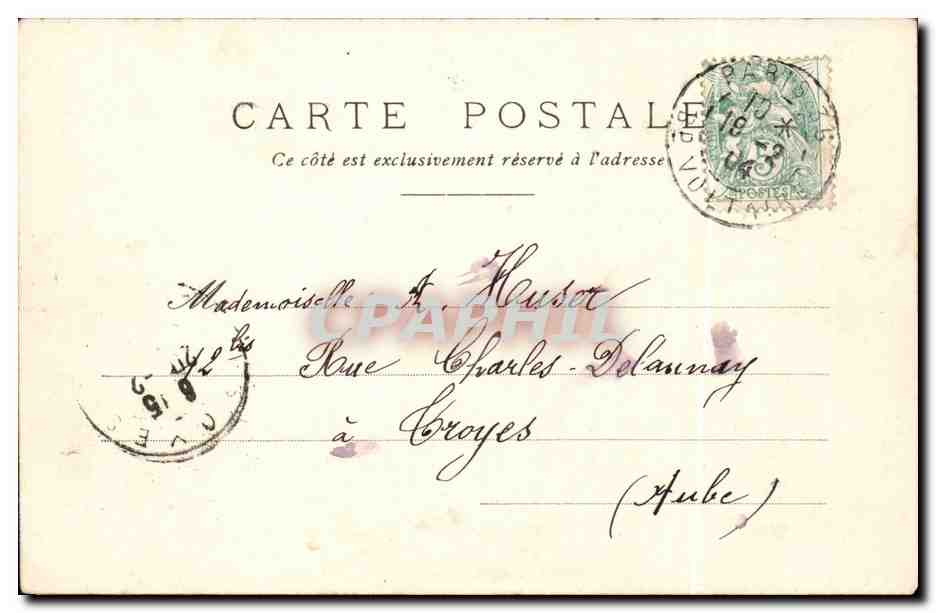 CARTE POSTALE
Ce côté est exclusivement réservé à l'adresse
PARIS
19
04
BD VOLTAIRE
5
POSTES
Mademoiselle A. Huser
12 bis Rue Charles-Delaunay
à Troyes
(Aube)
CPAPHIL